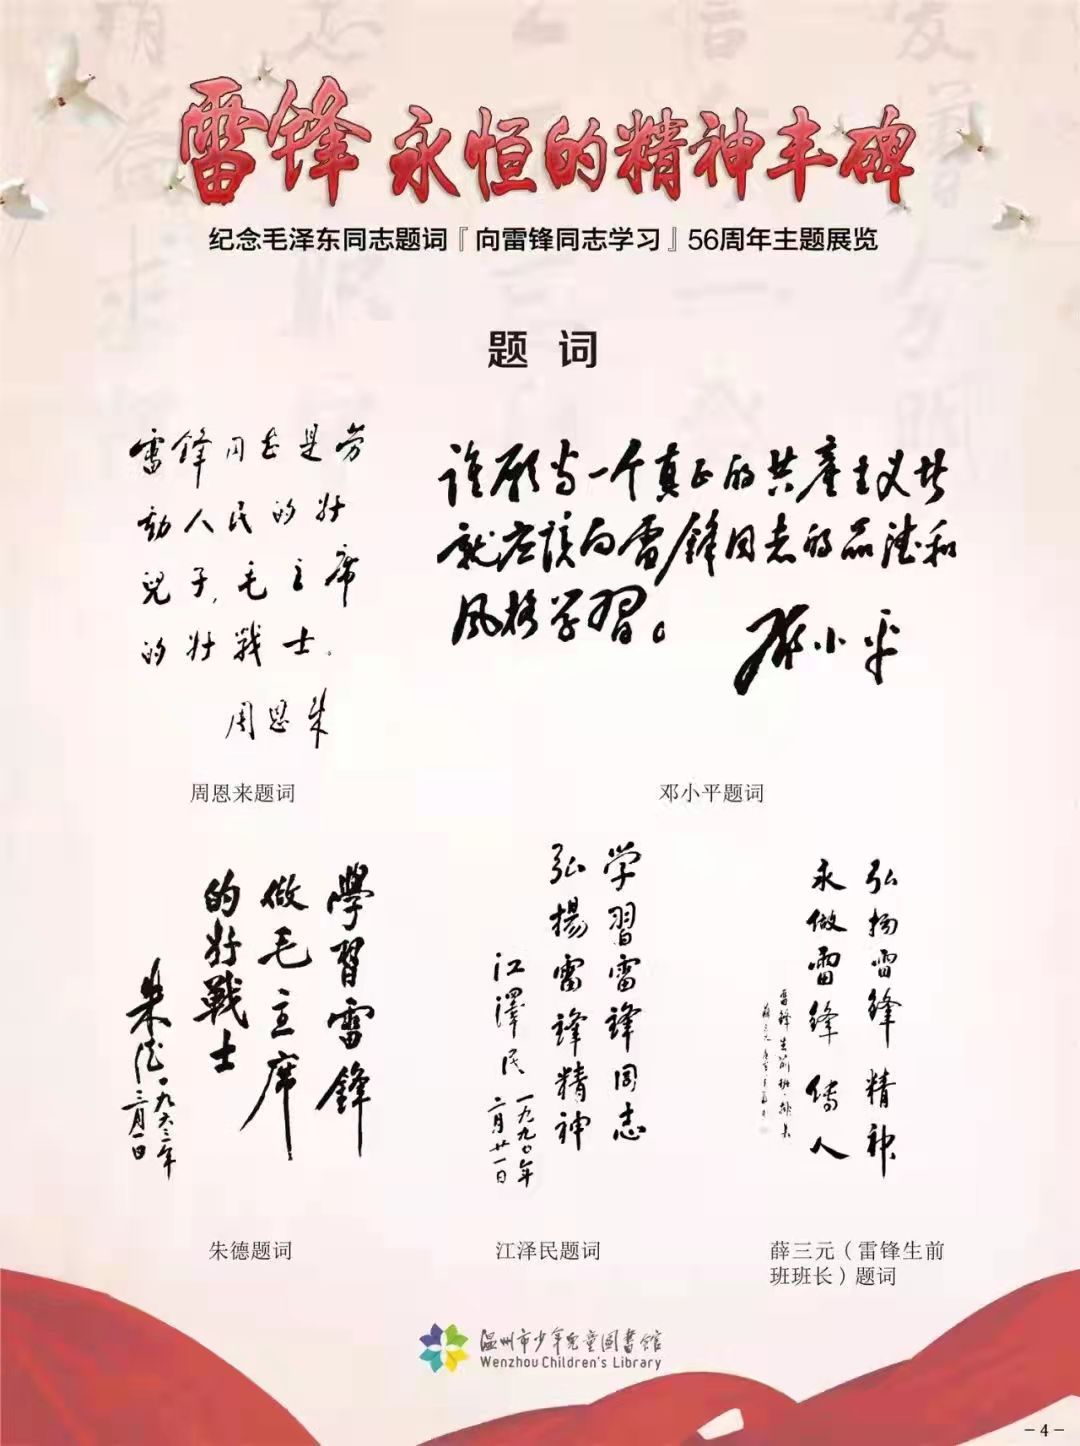 雷锋 永恒的精神丰碑
纪念毛泽东同志题词『向雷锋同志学习』56周年主题展览
题 词
雷锋同志是劳
动人民的好
兒子,毛主席
的好戰士。
周恩来
周恩来题词
谁愿当一个真正的共產主义者
就应该向雷锋同志的品德和
风格学習。
邓小平
邓小平题词
學習雷鋒
做毛主席
的好戰士
朱德
一九六三年
三月一日
朱德题词
学習雷锋同志
弘揚雷锋精神
江澤民
一九九〇年
二月廿一日
江泽民题词
弘扬雷锋精神
永做雷锋传人
雷锋生前班班长
薛三元(雷锋生前
班班长)题词
温州市少年兒童图書館
Wenzhou Children's Library
-4-